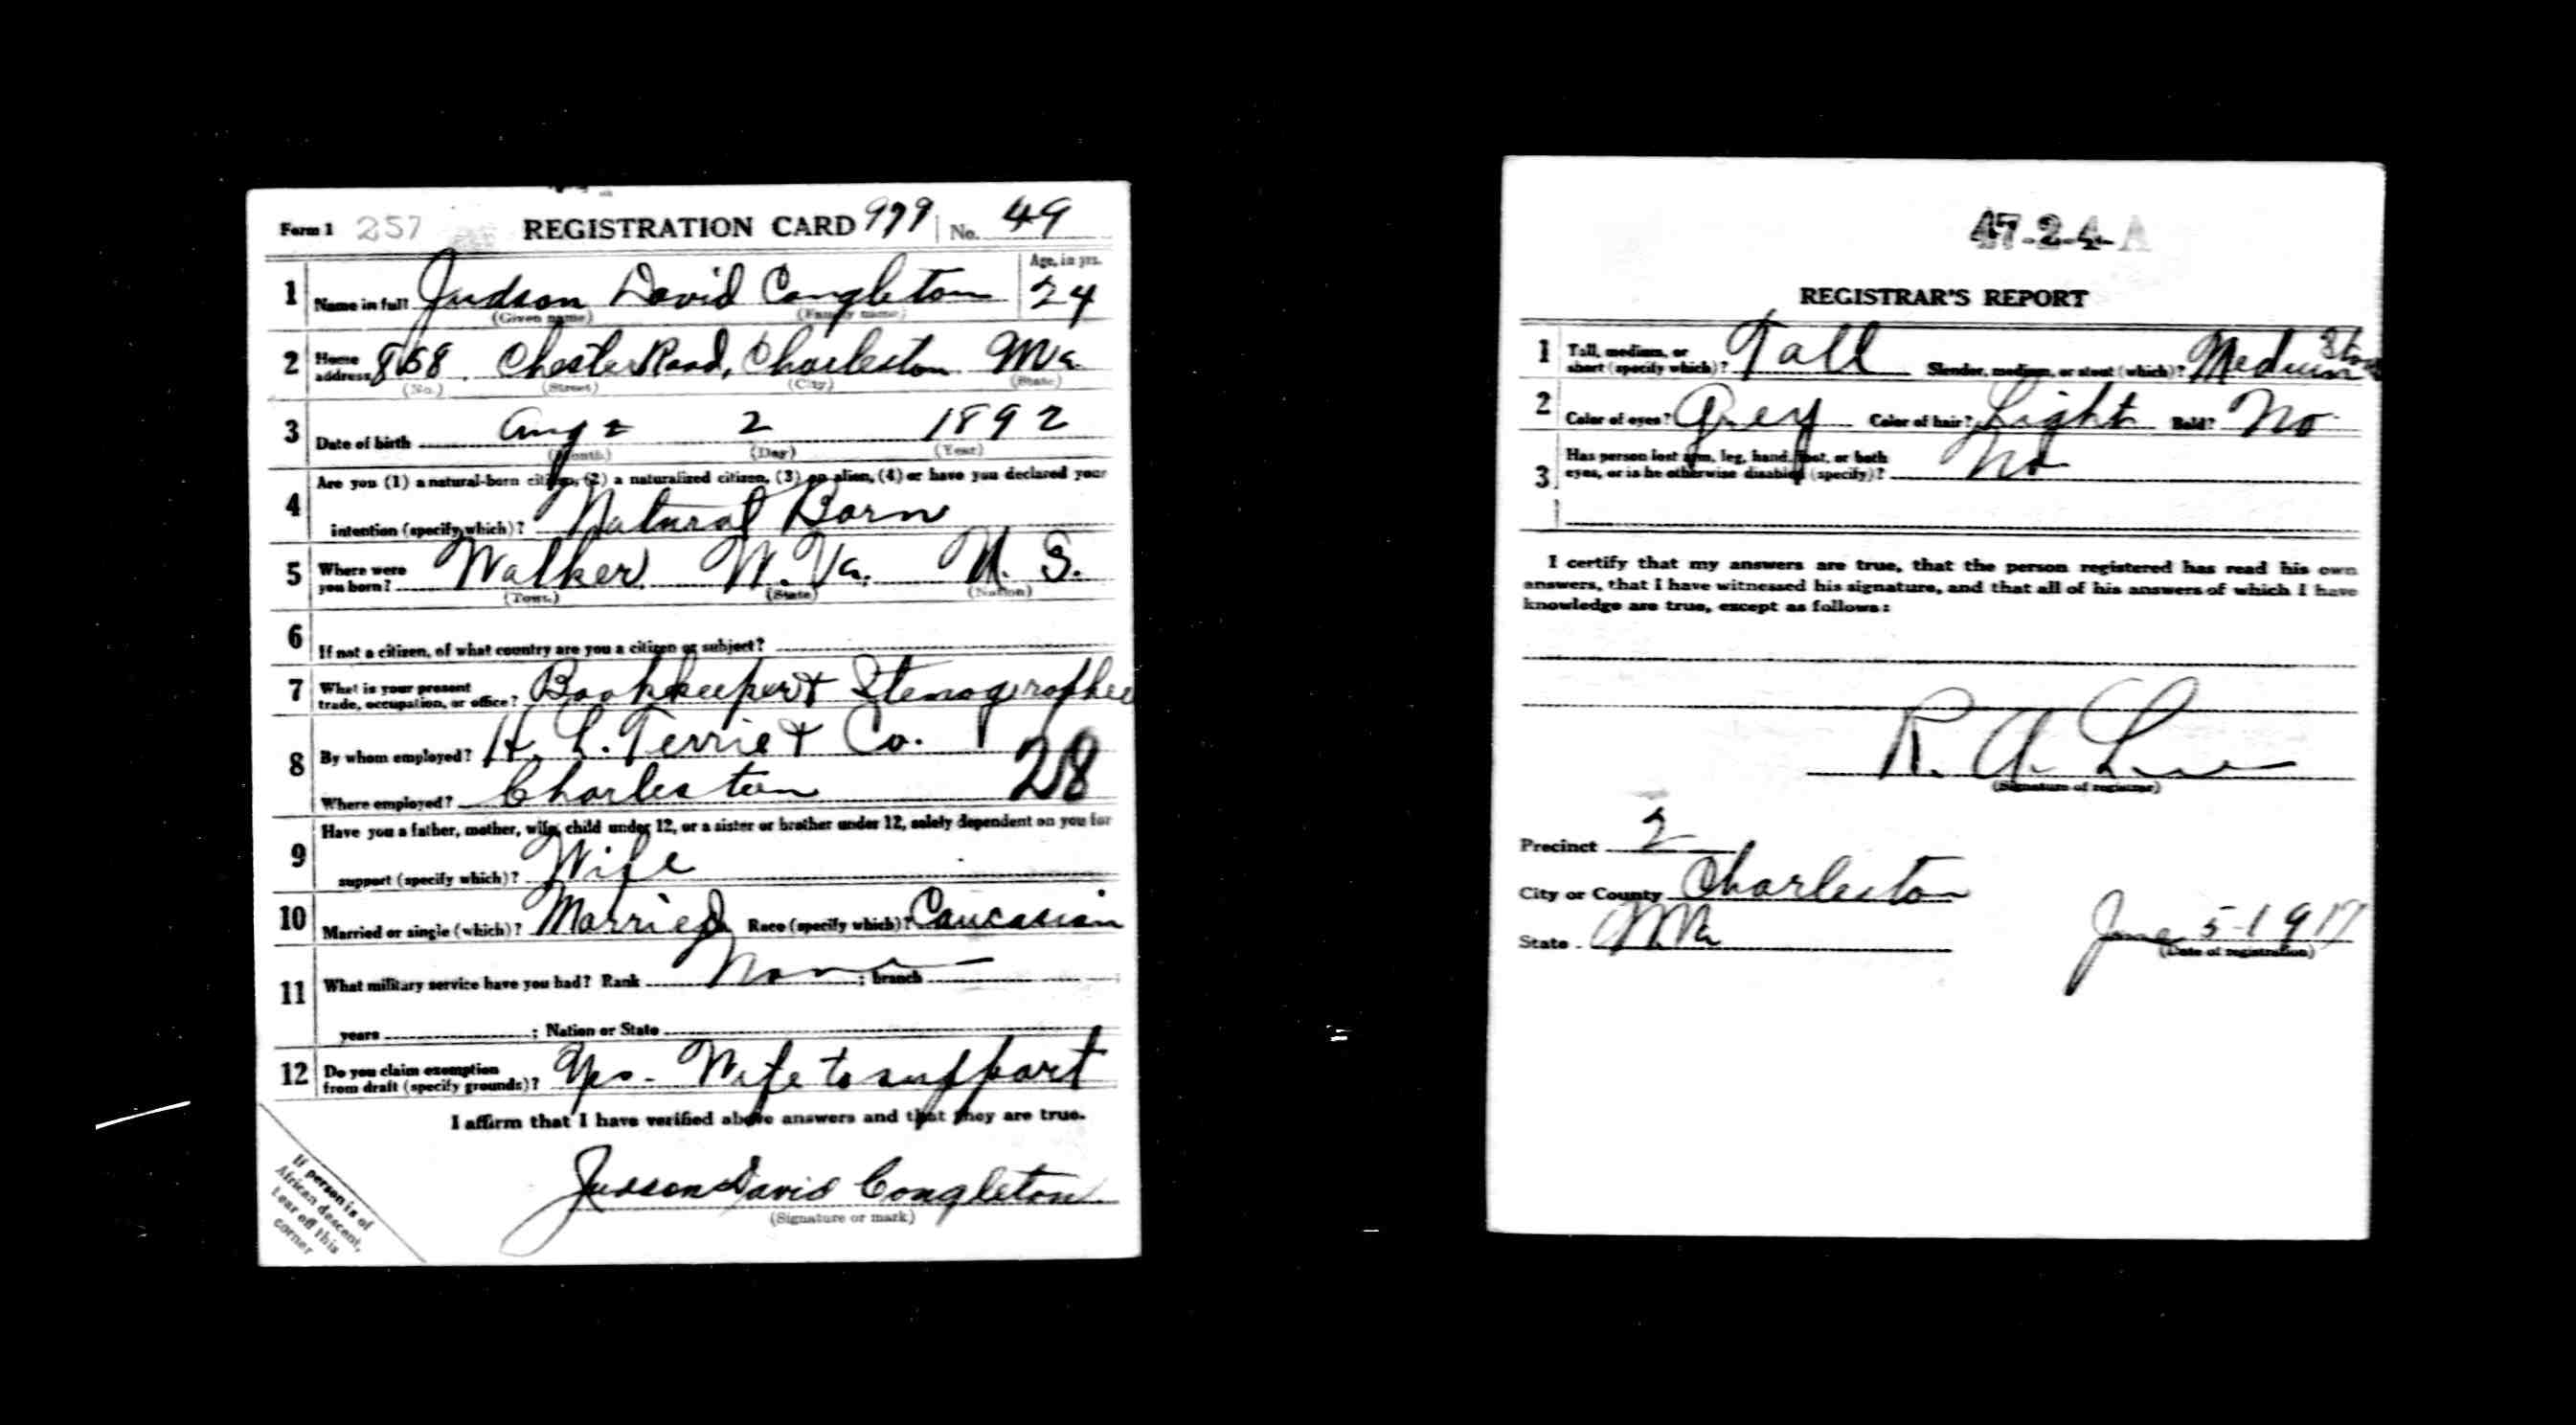 Form 1 257 REGISTRATION CARD 979 No. 49
1 Name in full Judson David Congleton Age, in yrs. 24
(Given name) (Family name)
2 Home address 858 Chester Road, Charleston W Va.
(No.) (Street) (City) (State)
3 Date of birth Aug 2 2 1892
(Month) (Day) (Year)
4 Are you (1) a natural-born citizen, (2) a naturalized citizen, (3) an alien, (4) or have you declared your
intention (specify which)? Natural Born
5 Where were you born? Walker W. Va. U. S.
(Town) (State) (Nation)
6 If not a citizen, of what country are you a citizen or subject?
7 What is your present trade, occupation, or office? Bookkeeper & Stenographer
8 By whom employed? H. L. Terrie & Co.
Where employed? Charleston 28
9 Have you a father, mother, wife, child under 12, or a sister or brother under 12, solely dependent on you for
support (specify which)? Wife
10 Married or single (which)? Married Race (specify which)? Caucasian
11 What military service have you had? Rank None; branch
years ; Nation or State
12 Do you claim exemption from draft (specify grounds)? Yes. Wife to support
I affirm that I have verified above answers and that they are true.
Judson David Congleton
(Signature or mark)
If person is of
African descent,
tear off this
corner
47-2-4-A
REGISTRAR'S REPORT
1 Tall, medium, or short (specify which)? Tall Slender, medium, or stout (which)? Medium
2 Color of eyes? Grey Color of hair? Light Bald? No
3 Has person lost arm, leg, hand, foot, or both
eyes, or is he otherwise disabled (specify)? No
I certify that my answers are true, that the person registered has read his own
answers, that I have witnessed his signature, and that all of his answers of which I have
knowledge are true, except as follows:
R. A.
(Signature of registrar)
Precinct 2
City or County Charleston
State W. Va June 5-1917
(Date of registration)